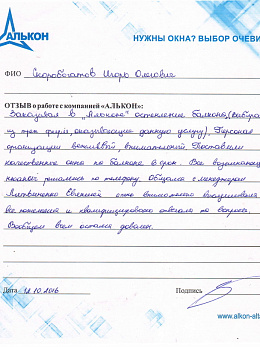 АЛЬКОН
НУЖНЫ ОКНА? ВЫБОР ОЧЕВИ
ФИО Скоробогатов Игорь Олегович
ОТЗЫВ о работе с компанией «АЛЬКОН»:
Заказывал в „Алькон“ остекление балкона (выбирал
из трёх фирм, оказывающих данную услугу). Персонал
организации вежливый, внимательный. Поставили
качественные окна на балкон в срок. Все возникающие
решались по телефону. Общался с менеджером
Евгенией она внимательно выслушивала
все пожелания и квалифицированно отвечала на вопросы.
Вообщем всем остался доволен.
Дата 12.10.2016
www.alkon-alta